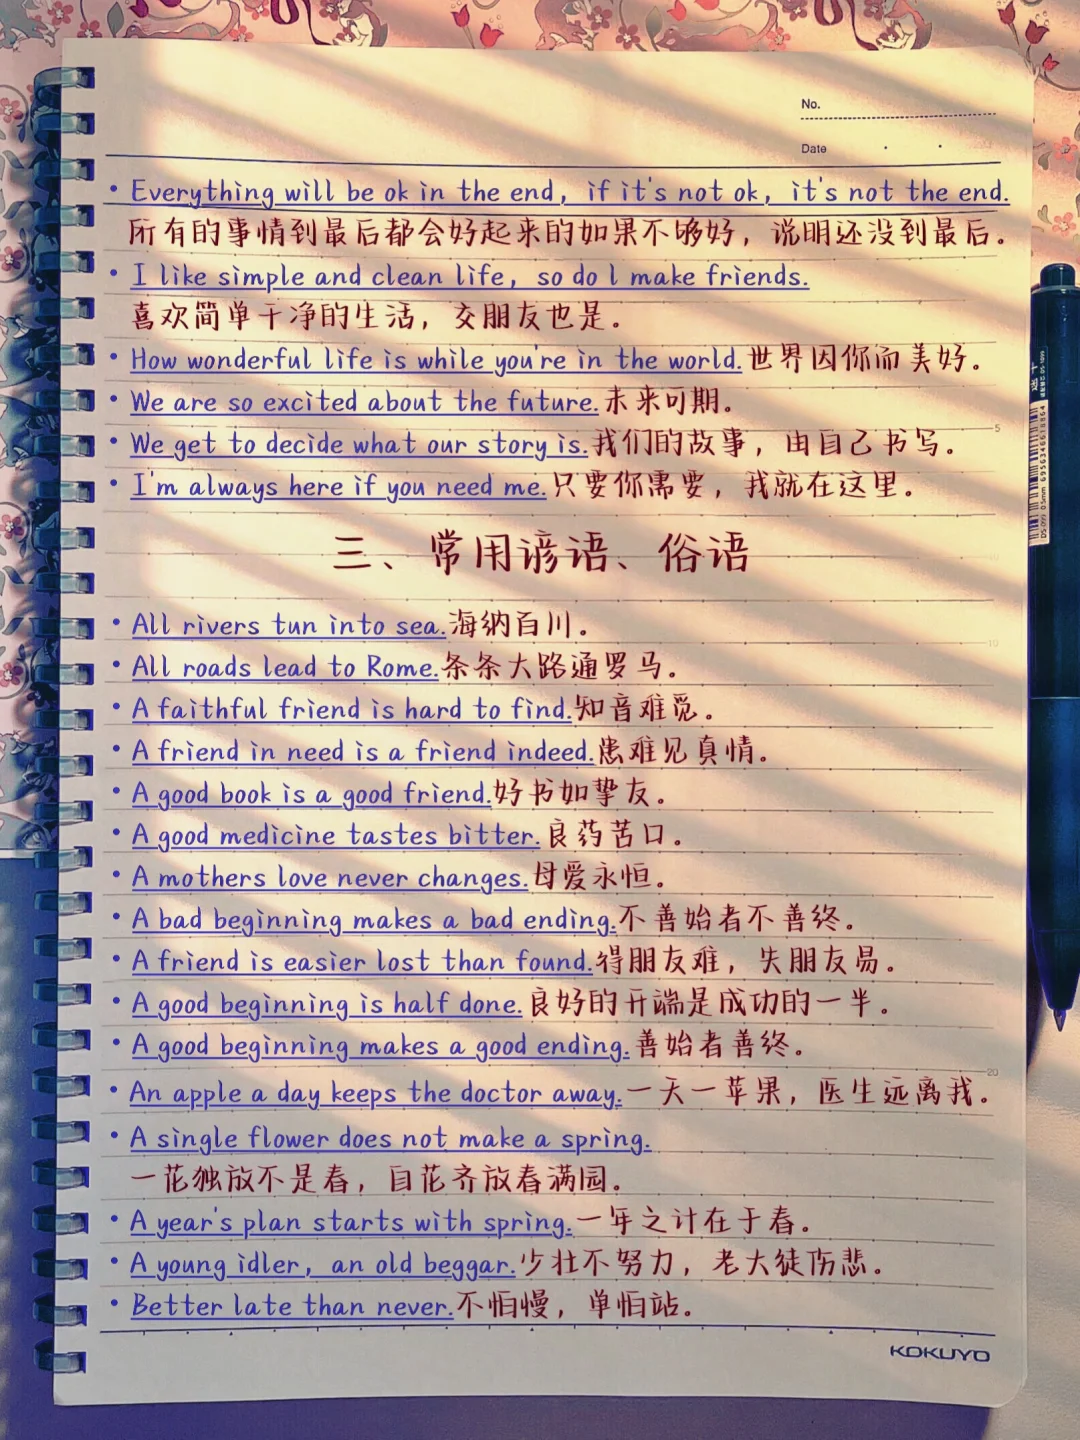 No.
Date
• Everything will be ok in the end, if it's not ok, it's not the end.
所有的事情到最后都会好起来的如果不够好，说明还没到最后。
• I like simple and clean life, so do l make friends.
喜欢简单干净的生活，交朋友也是。
• How wonderful life is while you're in the world.世界因你而美好。
• We are so excited about the future.未来可期。
• We get to decide what our story is.我们的故事，由自己书写。
5
• I'm always here if you need me.只要你需要，我就在这里。
三、常用谚语、俗语
• All rivers tun into sea.海纳百川。
10
• All roads lead to Rome.条条大路通罗马。
• A faithful friend is hard to find.知音难觅。
• A friend in need is a friend indeed.患难见真情。
• A good book is a good friend.好书如挚友。
• A good medicine tastes bitter.良药苦口。
• A mothers love never changes.母爱永恒。
• A bad beginning makes a bad ending.不善始者不善终。
• A friend is easier lost than found.得朋友难，失朋友易。
• A good beginning is half done.良好的开端是成功的一半。
• A good beginning makes a good ending.善始者善终。
20
• An apple a day keeps the doctor away.一天一苹果，医生远离我。
• A single flower does not make a spring.
一花独放不是春，百花齐放春满园。
• A year's plan starts with spring.一年之计在于春。
• A young idler, an old beggar.少壮不努力，老大徒伤悲。
• Better late than never.不怕慢，单怕站。
KOKUYO